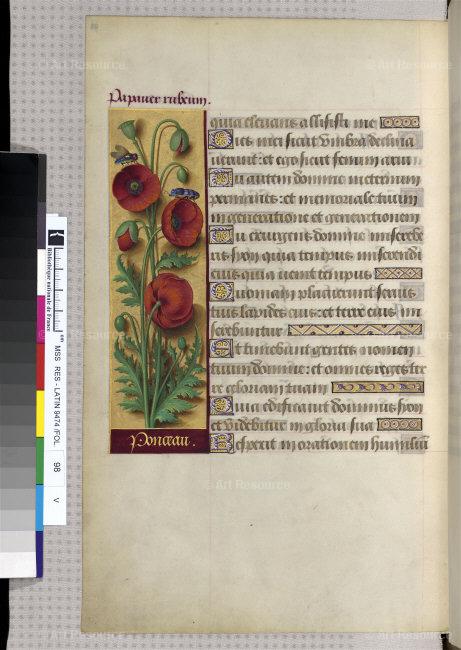 Papaver rubeum.
quia elevans allisisti me
Dies mei sicut umbra declina
verunt: et ego sicut fenum arui
Tu autem domine ineternum
permanes: et memoriale tuum
in generatione et generationem
Tu exurgens domine miserebe
ris syon quia tempus miserendi
eius quia venit tempus
Quoniam placuerunt servis
tuis lapides eius: et terre eius mi
serebuntur
Et timebunt gentes nomen
tuum domine: et omnes reges ter
re gloriam tuam
Quia edificavit dominus syon
et videbitur in gloria sua
Respexit in orationem humiliũ
Ponceau.
Bibliothèque nationale de France
MSS RES - LATIN 9474 /FOL
98
V
© Art Resource